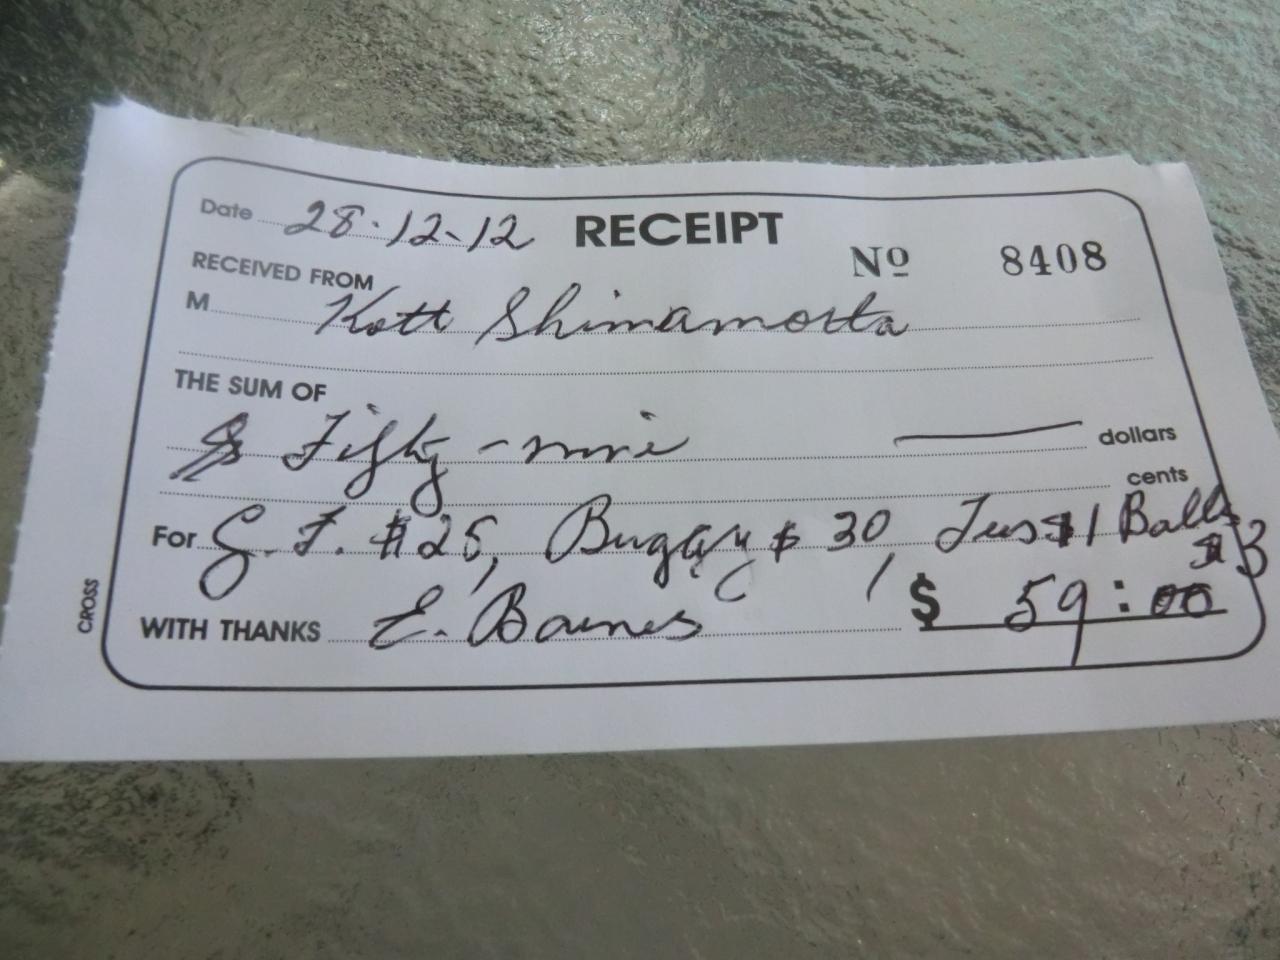 Date 28.12.12 RECEIPT
No 8408
RECEIVED FROM
M Kott Shimamotta
THE SUM OF
$ Fifty-nine dollars
cents
For G.F. $25, Buggy $30, Tees $1 Balls
$3
WITH THANKS E. Baines $ 59:00
CROSS